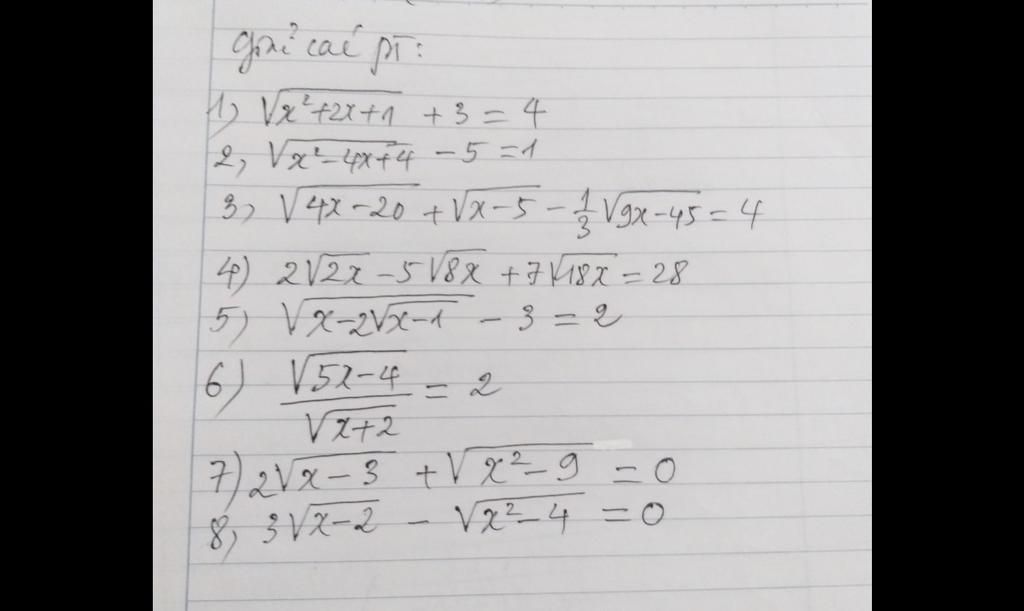 Giải các pT:
1) √(x²+2x+1) + 3 = 4
2, √(x²-4x+4) - 5 = 1
3, √(4x-20) + √(x-5) - 1/3 √(9x-45) = 4
4) 2√(2x) - 5√(8x) + 7√(18x) = 28
5) √(x-2√(x-1)) - 3 = 2
6) √(5x-4) / √(x+2) = 2
7) 2√(x-3) + √(x²-9) = 0
8, 3√(x-2) - √(x²-4) = 0